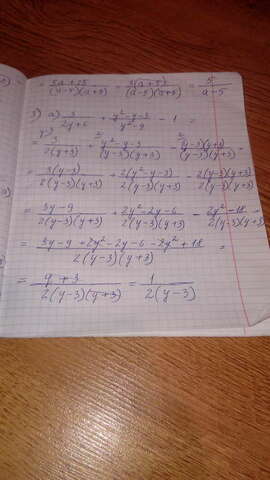 = 5a+25 / (a-5)(a+5) = 5(a+5) / (a-5)(a+5) = 5 / a-5
3) a) 3 / 2y+6 + y²-y-3 / y²-9 - 1 =
= 3 / 2(y+3) + y²-y-3 / (y-3)(y+3) - (y-3)(y+3) / (y-3)(y+3) =
= 3(y-3) / 2(y-3)(y+3) + 2(y²-y-3) / 2(y-3)(y+3) - 2(y-3)(y+3) / 2(y-3)(y+3) =
= 3y-9 / 2(y-3)(y+3) + 2y²-2y-6 / 2(y-3)(y+3) - 2y²-18 / 2(y-3)(y+3) =
= 3y-9+2y²-2y-6-2y²+18 / 2(y-3)(y+3) =
= y+3 / 2(y-3)(y+3) = 1 / 2(y-3)